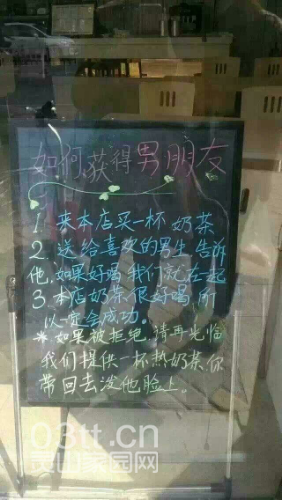 如何获得男朋友
1. 来本店买一杯奶茶
2. 送给喜欢的男生告诉
他,如果好喝我们就在一起
3 本店奶茶很好喝,所
以一定会成功。
*如果被拒绝,请再光临
我们提供一杯热奶茶你
带回去泼他脸上。
03tt.cn
灵山家园网